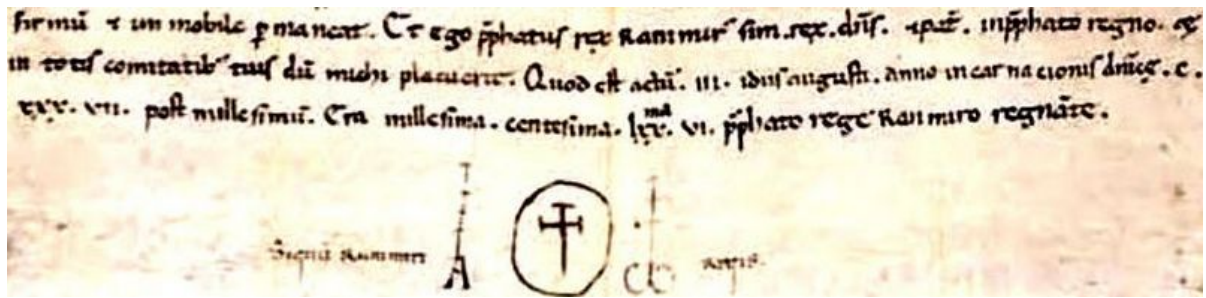 firmū ⁊ un mobile ꝑ maneat. Et ego p̄phatus rex Ranimir' sim. rex. dn̄s. ⁊ pat̄. in p̄phato regno. &
in totis comitatib' tuis dū michi placuerit. Quod est actū. III. idus augusti. anno incarnacionis dn̄icę. c.
xxx. vii. post millesimū. Era millesima. centesima. lxx.ma vi. p̄phato rege Ranimiro regnāte.
Signū Ranimiri A ω regis.